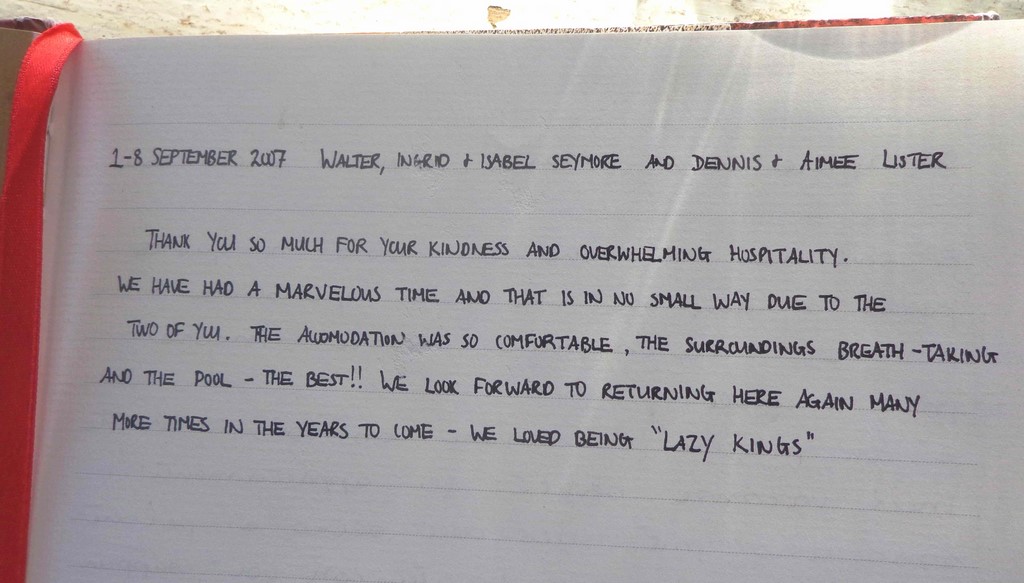 1-8 SEPTEMBER 2007 WALTER, INGRID & ISABEL SEYMORE AND DENNIS & AIMEE LISTER
THANK YOU SO MUCH FOR YOUR KINDNESS AND OVERWHELMING HOSPITALITY.
WE HAVE HAD A MARVELOUS TIME AND THAT IS IN NO SMALL WAY DUE TO THE
TWO OF YOU. THE ACCOMODATION WAS SO COMFORTABLE, THE SURROUNDINGS BREATH-TAKING
AND THE POOL - THE BEST!! WE LOOK FORWARD TO RETURNING HERE AGAIN MANY
MORE TIMES IN THE YEARS TO COME - WE LOVED BEING "LAZY KINGS"